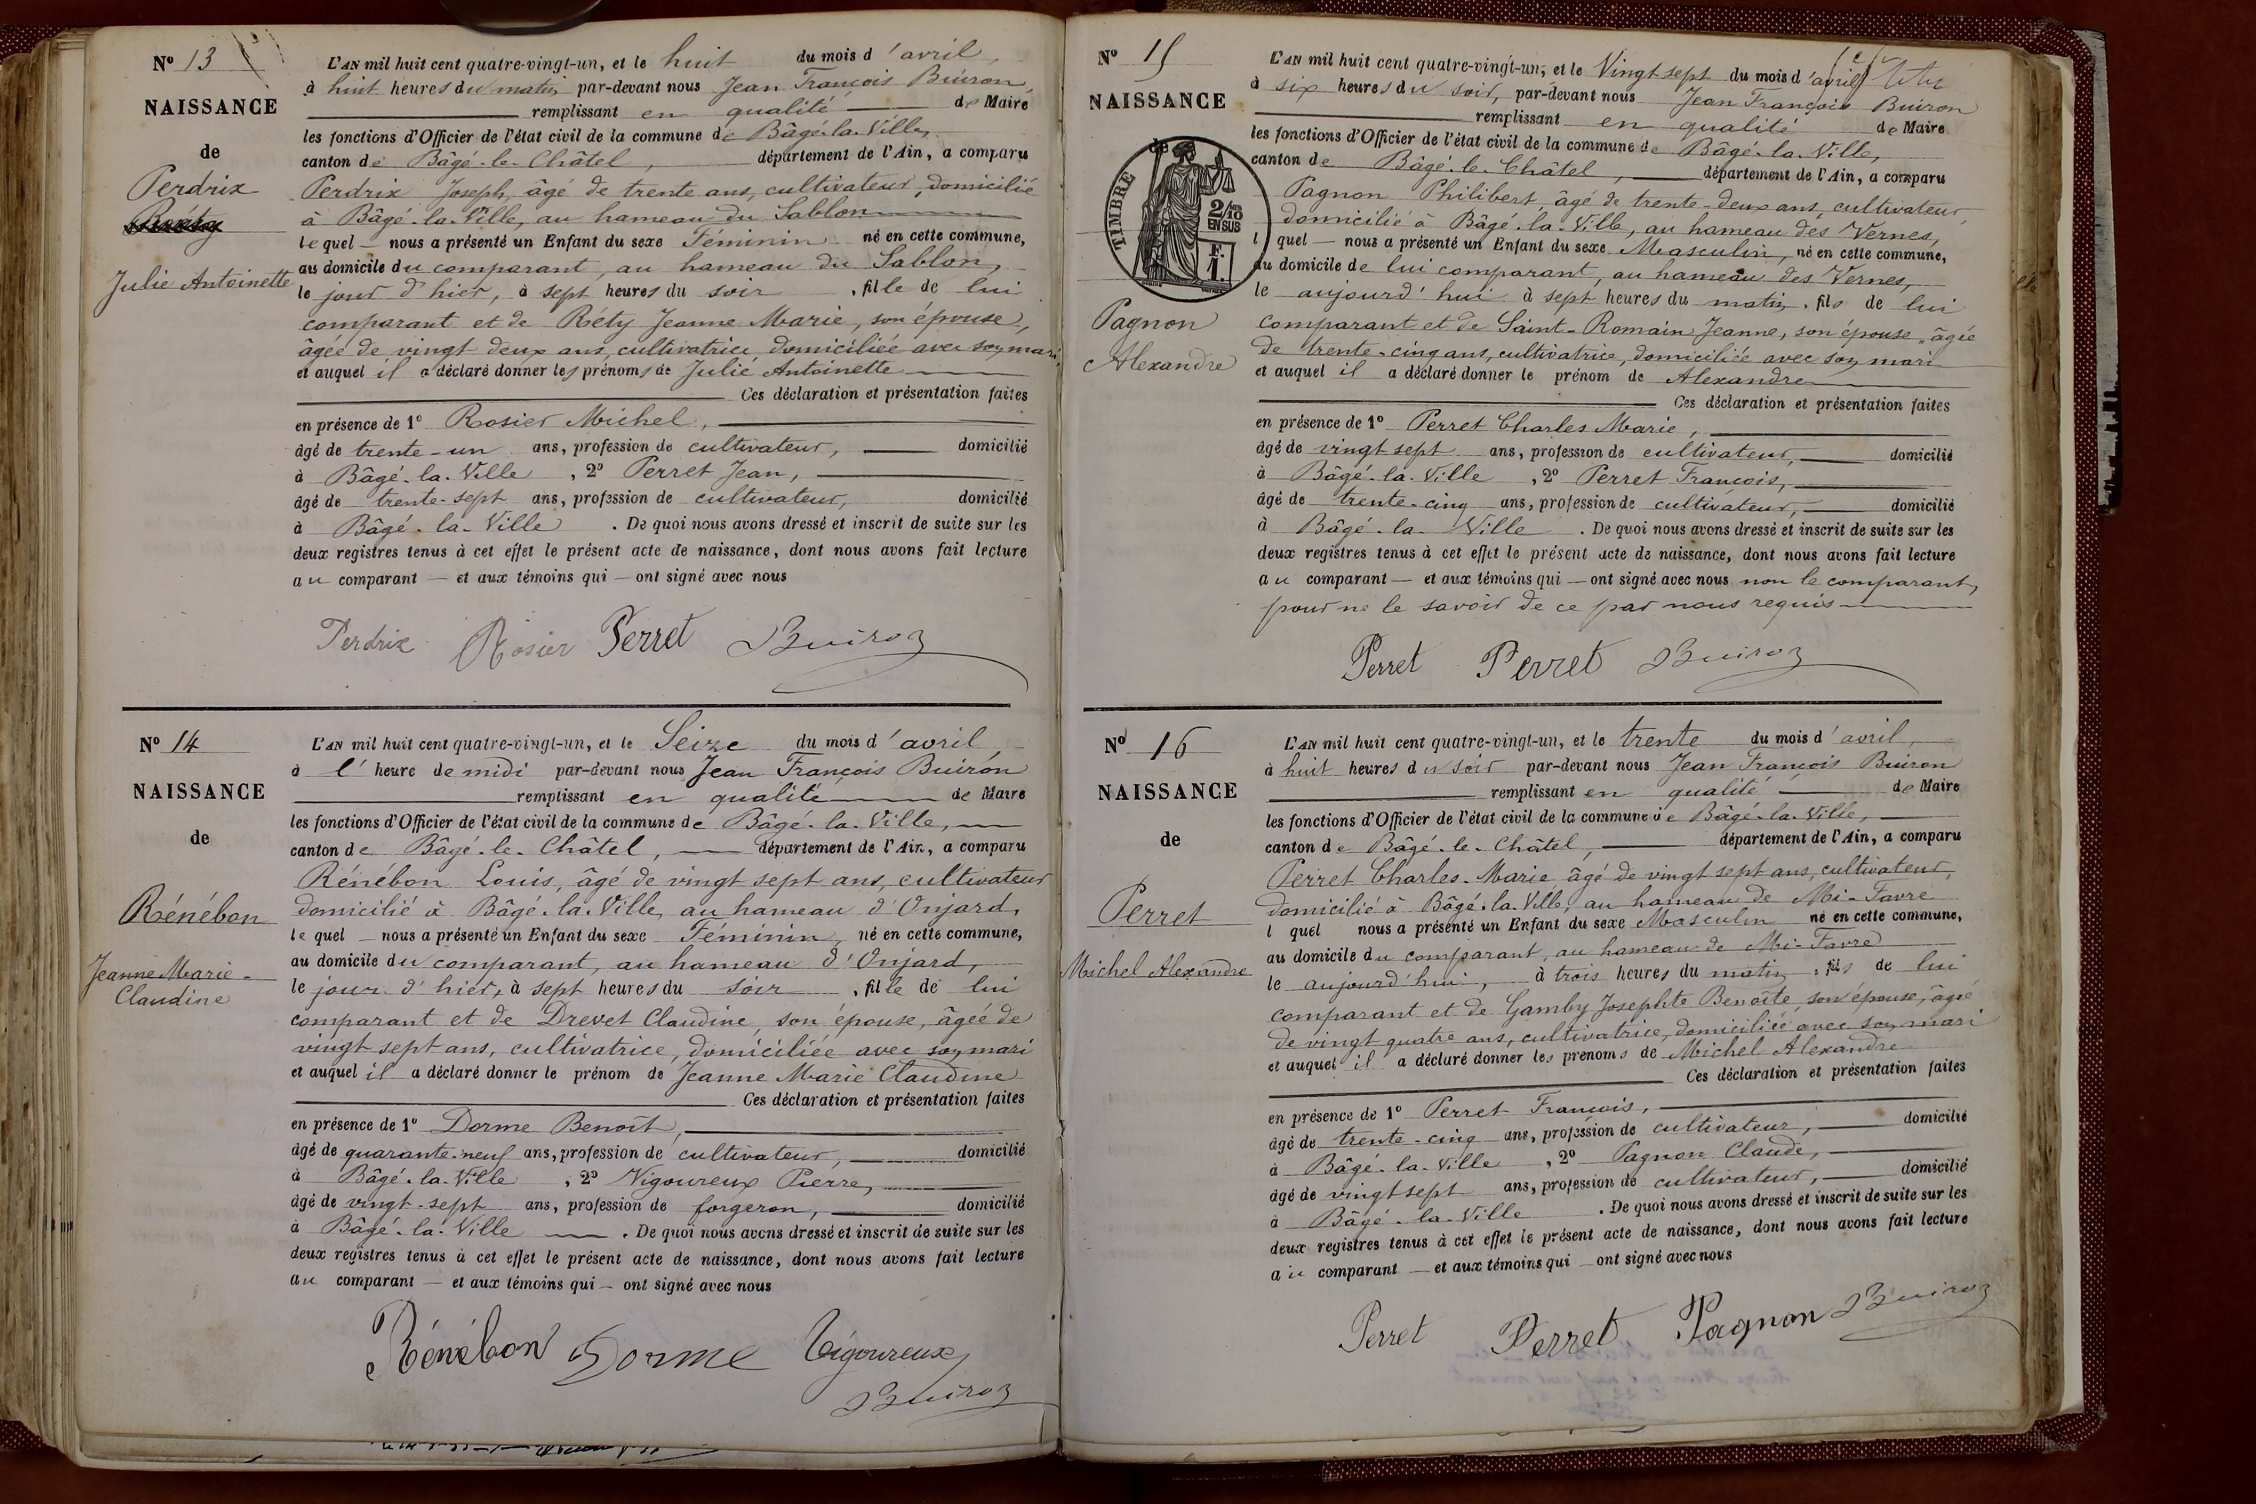 Nº 13
NAISSANCE
de
Perdrix
Julie Antoinette
L'AN mil huit cent quatre-vingt-un, et le huit du mois d'avril,
à huit heures du matin par-devant nous Jean François Buiron,
remplissant en qualité de Maire
les fonctions d'Officier de l'état civil de la commune de Bâgé-la-Ville,
canton de Bâgé-le-Châtel, département de l'Ain, a comparu
Perdrix Joseph, âgé de trente ans, cultivateur, domicilié
à Bâgé-la-Ville, au hameau du Sablon
lequel nous a présenté un Enfant du sexe Féminin né en cette commune,
au domicile du comparant, au hameau du Sablon,
le jour d'hier, à sept heures du soir, fille de lui
comparant et de Réty Jeanne Marie, son épouse,
âgée de vingt deux ans, cultivatrice, domiciliée avec son mari
et auquel il a déclaré donner les prénoms de Julie Antoinette
Ces déclaration et présentation faites
en présence de 1º Rosier Michel,
âgé de trente-un ans, profession de cultivateur, domicilié
à Bâgé-la-Ville, 2º Perret Jean,
âgé de trente-sept ans, profession de cultivateur, domicilié
à Bâgé-la-Ville. De quoi nous avons dressé et inscrit de suite sur les
deux registres tenus à cet effet le présent acte de naissance, dont nous avons fait lecture
au comparant — et aux témoins qui — ont signé avec nous
Perdrix Rosier Perret Buiron
Nº 14
NAISSANCE
de
Rénébon
Jeanne Marie-
Claudine
L'AN mil huit cent quatre-vingt-un, et le Seize du mois d'avril,
à l'heure de midi par-devant nous Jean François Buiron
remplissant en qualité de Maire
les fonctions d'Officier de l'état civil de la commune de Bâgé-la-Ville,
canton de Bâgé-le-Châtel, département de l'Ain, a comparu
Rénébon Louis, âgé de vingt sept ans, cultivateur
domicilié à Bâgé-la-Ville, au hameau d'Onjard,
lequel — nous a présenté un Enfant du sexe Féminin, né en cette commune,
au domicile du comparant, au hameau d'Onjard,
le jour d'hier, à sept heures du soir, fille de lui
comparant et de Drevet Claudine, son épouse, âgée de
vingt sept ans, cultivatrice, domiciliée avec son mari
et auquel il a déclaré donner le prénom de Jeanne Marie Claudine
Ces déclaration et présentation faites
en présence de 1º Dorme Benoît,
âgé de quarante-neuf ans, profession de cultivateur, domicilié
à Bâgé-la-Ville, 2º Vigoureux Pierre,
âgé de vingt-sept ans, profession de forgeron, domicilié
à Bâgé-la-Ville. De quoi nous avons dressé et inscrit de suite sur les
deux registres tenus à cet effet le présent acte de naissance, dont nous avons fait lecture
au comparant — et aux témoins qui — ont signé avec nous
Rénébon Dorme Vigoureux
Buiron
Nº 15
NAISSANCE
de
TIMBRE
2/10 EN SUS
F. 1.
Pagnon
Alexandre
L'AN mil huit cent quatre-vingt-un, et le Vingt sept du mois d'avril
à six heures du soir, par-devant nous Jean François Buiron
remplissant en qualité de Maire
les fonctions d'Officier de l'état civil de la commune de Bâgé-la-Ville,
canton de Bâgé-le-Châtel, département de l'Ain, a comparu
Pagnon Philibert, âgé de trente-deux ans, cultivateur,
domicilié à Bâgé-la-Ville, au hameau des Vernes,
l quel — nous a présenté un Enfant du sexe Masculin, né en cette commune,
au domicile de lui comparant, au hameau des Vernes,
le aujourd'hui à sept heures du matin, fils de lui
comparant et de Saint-Romain Jeanne, son épouse, âgée
de trente-cinq ans, cultivatrice, domiciliée avec son mari
et auquel il a déclaré donner le prénom de Alexandre
Ces déclaration et présentation faites
en présence de 1º Perret Charles Marie,
âgé de vingt sept ans, profession de cultivateur, domicilié
à Bâgé-la-Ville, 2º Perret François,
âgé de trente-cinq ans, profession de cultivateur, domicilié
à Bâgé-la-Ville. De quoi nous avons dressé et inscrit de suite sur les
deux registres tenus à cet effet le présent acte de naissance, dont nous avons fait lecture
au comparant — et aux témoins qui — ont signé avec nous non le comparant,
pour ne le savoir de ce par nous requis
Perret Perret Buiron
Nº 16
NAISSANCE
de
Perret
Michel Alexandre
L'AN mil huit cent quatre-vingt-un, et le trente du mois d'avril,
à huit heures du soir par-devant nous Jean François Buiron
remplissant en qualité de Maire
les fonctions d'Officier de l'état civil de la commune de Bâgé-la-Ville,
canton de Bâgé-le-Châtel, département de l'Ain, a comparu
Perret Charles-Marie âgé de vingt sept ans, cultivateur,
domicilié à Bâgé-la-Ville, au hameau de Mi-Favre
l quel nous a présenté un Enfant du sexe Masculin né en cette commune,
au domicile du comparant, au hameau de Mi-Favre
le aujourd'hui, à trois heures du matin, fils de lui
comparant et de Gamby Josephte Benoîte, son épouse, âgée
de vingt quatre ans, cultivatrice, domiciliée avec son mari
et auquel il a déclaré donner les prénoms de Michel Alexandre
Ces déclaration et présentation faites
en présence de 1º Perret François,
âgé de trente-cinq ans, profession de cultivateur, domicilié
à Bâgé-la-Ville, 2º Pagnon Claude,
âgé de vingt sept ans, profession de cultivateur, domicilié
à Bâgé-la-Ville. De quoi nous avons dressé et inscrit de suite sur les
deux registres tenus à cet effet le présent acte de naissance, dont nous avons fait lecture
au comparant — et aux témoins qui — ont signé avec nous
Perret Perret Pagnon Buiron